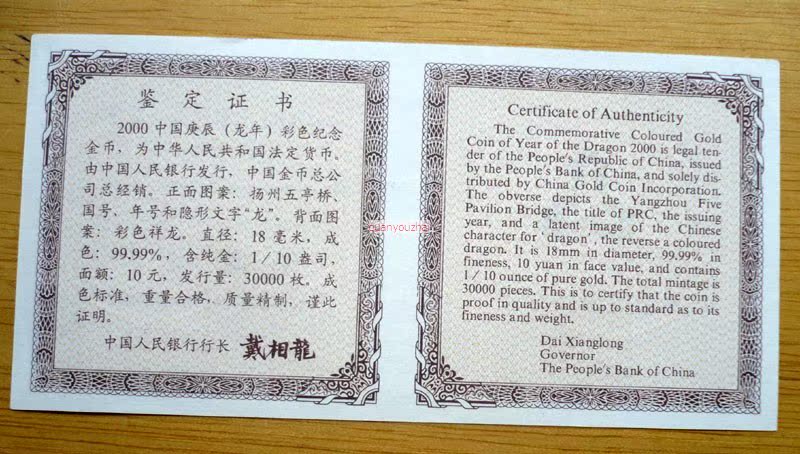 鉴定证书
2000中国庚辰（龙年）彩色纪念
金币，为中华人民共和国法定货币。
由中国人民银行发行，中国金币总公
司总经销。正面图案：扬州五亭桥、
国号、年号和隐形文字“龙”。背面图
案：彩色祥龙。直径：18毫米，成
色：99.99%，含纯金：1／10盎司，
面额：10元，发行量：30000枚。成
色标准，重量合格，质量精制，谨此
证明。
中国人民银行行长 戴相龍
Certificate of Authenticity
The Commemorative Coloured Gold
Coin of Year of the Dragon 2000 is legal ten-
der of the People's Republic of China, issued
by the People's Bank of China, and solely dis-
tributed by China Gold Coin Incorporation.
The obverse depicts the Yangzhou Five
Pavilion Bridge, the title of PRC, the issuing
year, and a latent image of the Chinese
character for 'dragon', the reverse a coloured
dragon. It is 18mm in diameter, 99.99% in
fineness, 10 yuan in face value, and contains
1／10 ounce of pure gold. The total mintage is
30000 pieces. This is to certify that the coin is
proof in quality and is up to standard as to its
fineness and weight.
Dai Xianglong
Governor
The People's Bank of China
quanyouzhai